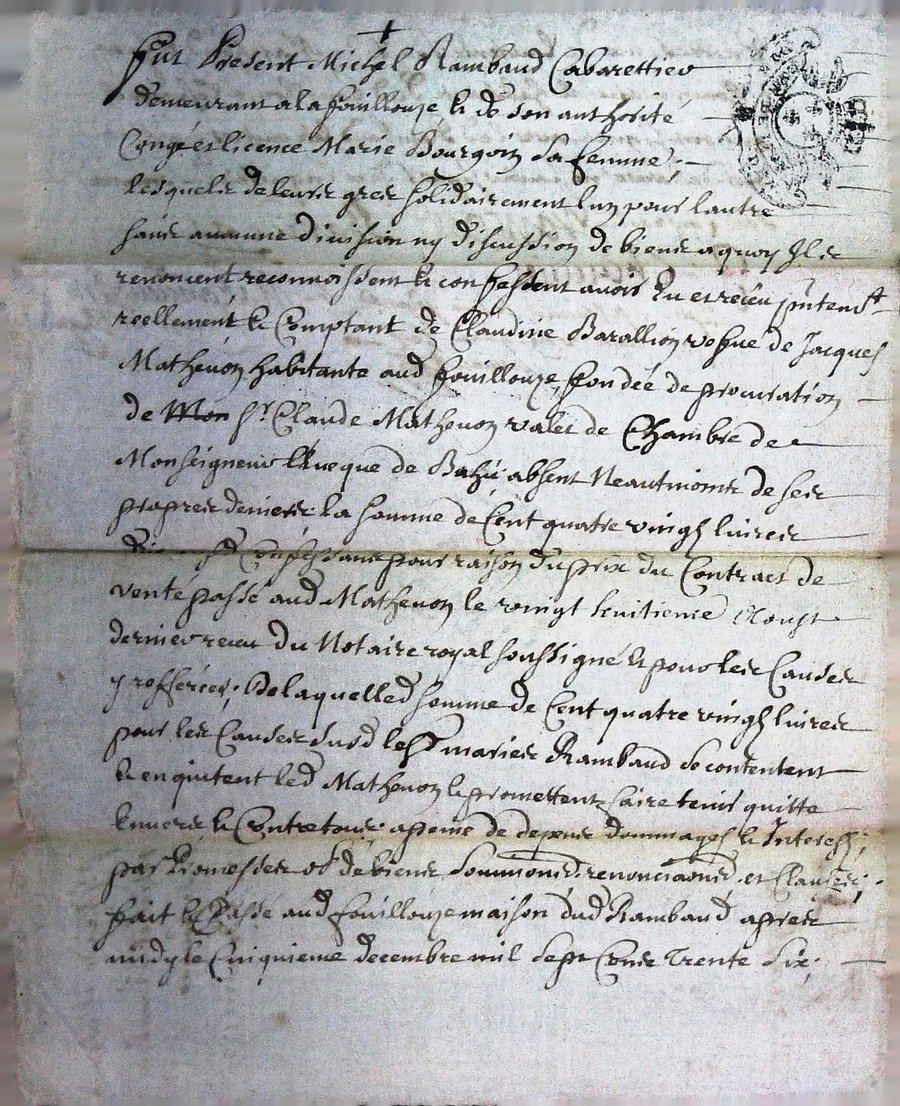 Fut Present Michel Rambaud Cabarettier
demeurant a la fouillouze & de son authorité
Congé et licence Marie Bourgoin sa femme,
lesquels de leurs grés solidairement l'un pour l'autre
sans aucune division ny discussion de biens a quoy Ils
renoncent reconnoissent & confessent avoir Eu et receu
reellement & Comptant de Claudine Barallion vefve de Jacques
Mathevon habitante aud fouillouze, fondée de procuration
de Mon Sr Claude Mathevon valet de Chambre de
Monseigneur absent Neautmoins de ses
propres deniers la somme de Cent quatre vingt livres
pour raison du prix du Contract de
vente passé aud Mathevon le vingt huitieme Aoust
dernier receu du Notaire royal soussigné & pour les Causes
y refferées; De laquelle d somme de Cent quatre vingt livres
pour les Causes susd les d mariés Rambaud se contentent
& en quitent led Mathevon & promettent faire tenir quitte
Envers & Contre tous a peine de depens dommages & Interests;
par Promesses ob de biens soumions renonciaons et Clauses;
fait & Passé aud fouillouze maison dud Rambaud apres
midy le Cinquieme decembre mil sept Cents Trente Six;